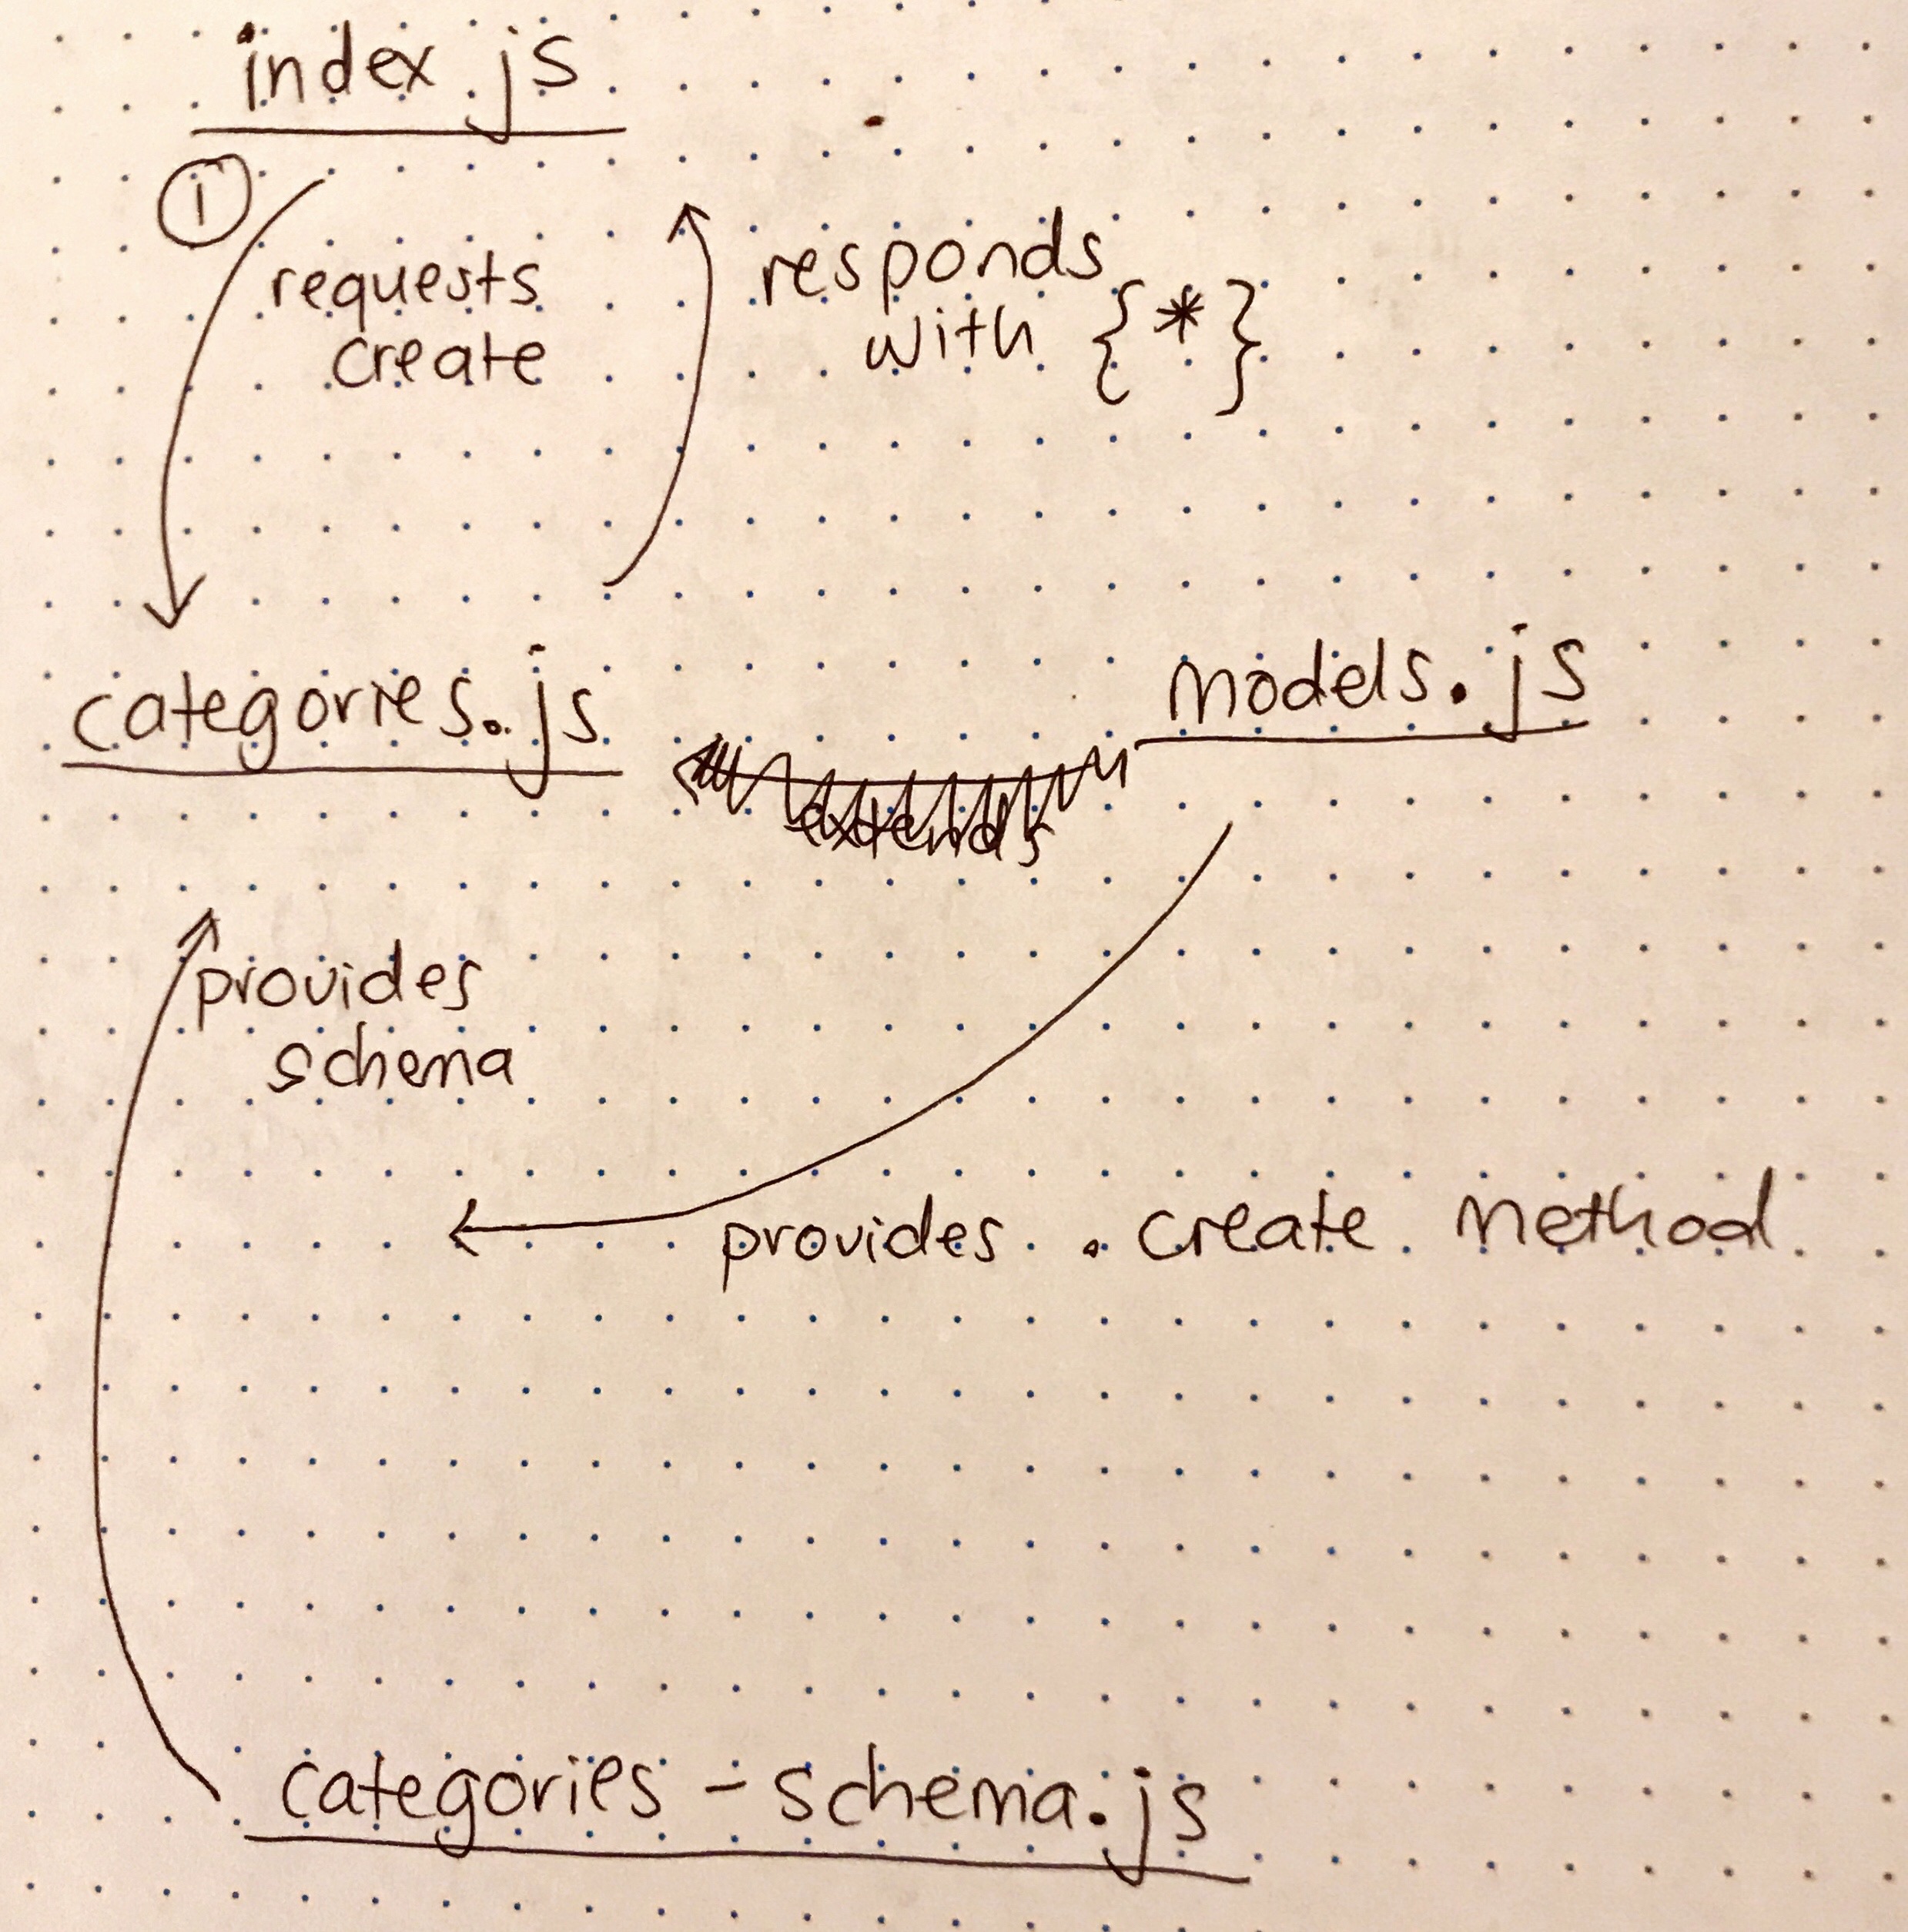 index.js
1
requests
create
responds
with {*}
categories.js
models.js
extends
provides
schema
provides .create method
categories-schema.js